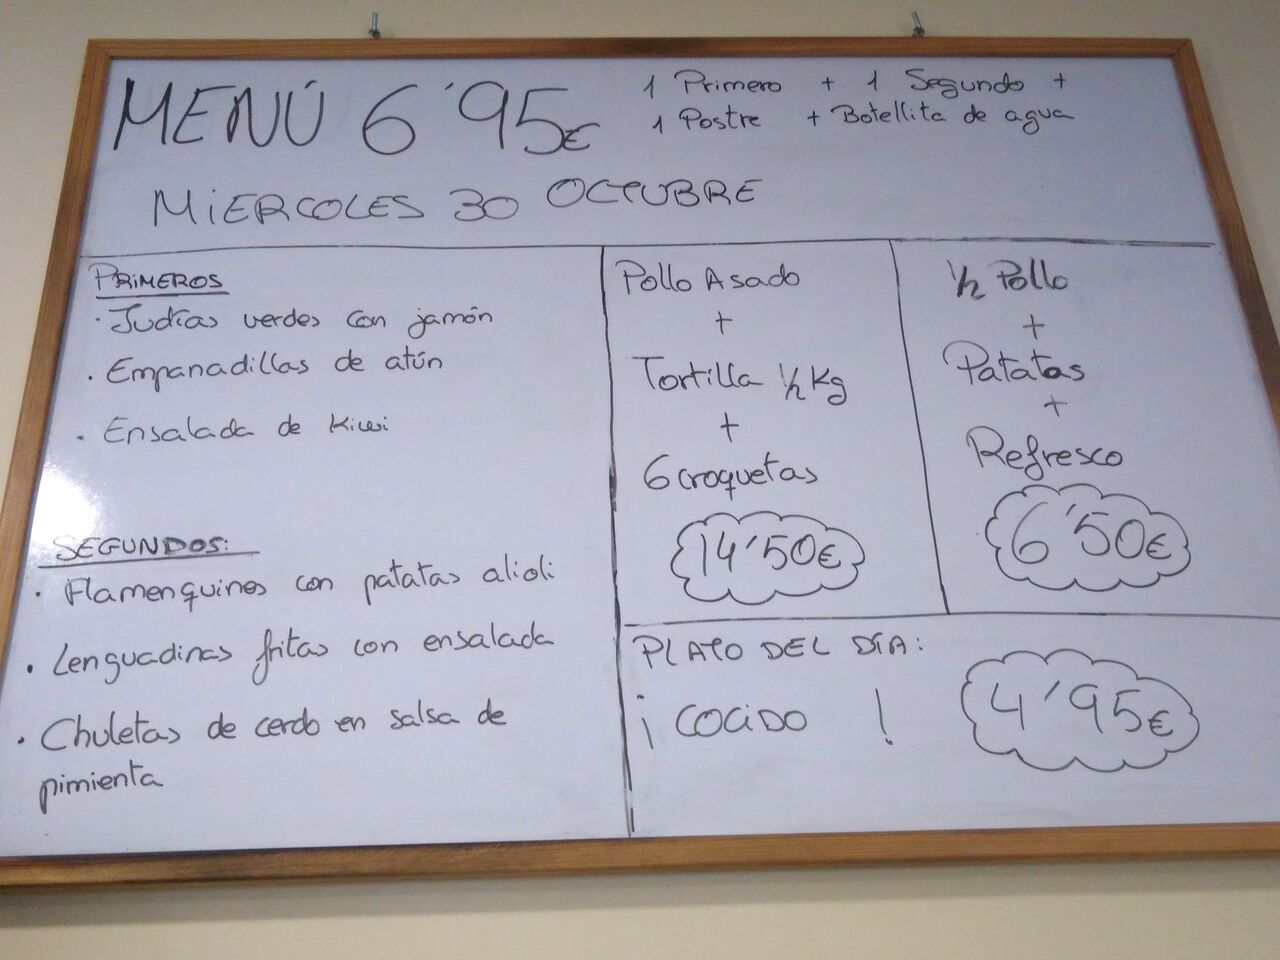 MENÚ 6'95€
1 Primero + 1 Segundo +
1 Postre + Botellita de agua
MiERCOLES 30 OCTUBRE
PRiMEROS
· Judías verdes con jamón
· Empanadillas de atún
· Ensalada de Kiwi
SEGUNDOS:
· Flamenquines con patatas alioli
· Lenguadinas fritas con ensalada
· Chuletas de cerdo en salsa de
pimienta
Pollo Asado
+
Tortilla 1/2 Kg
+
6 croquetas
14'50€
1/2 Pollo
+
Patatas
+
Refresco
6'50€
PLATO DEL DÍA:
¡COCiDO!
4'95€